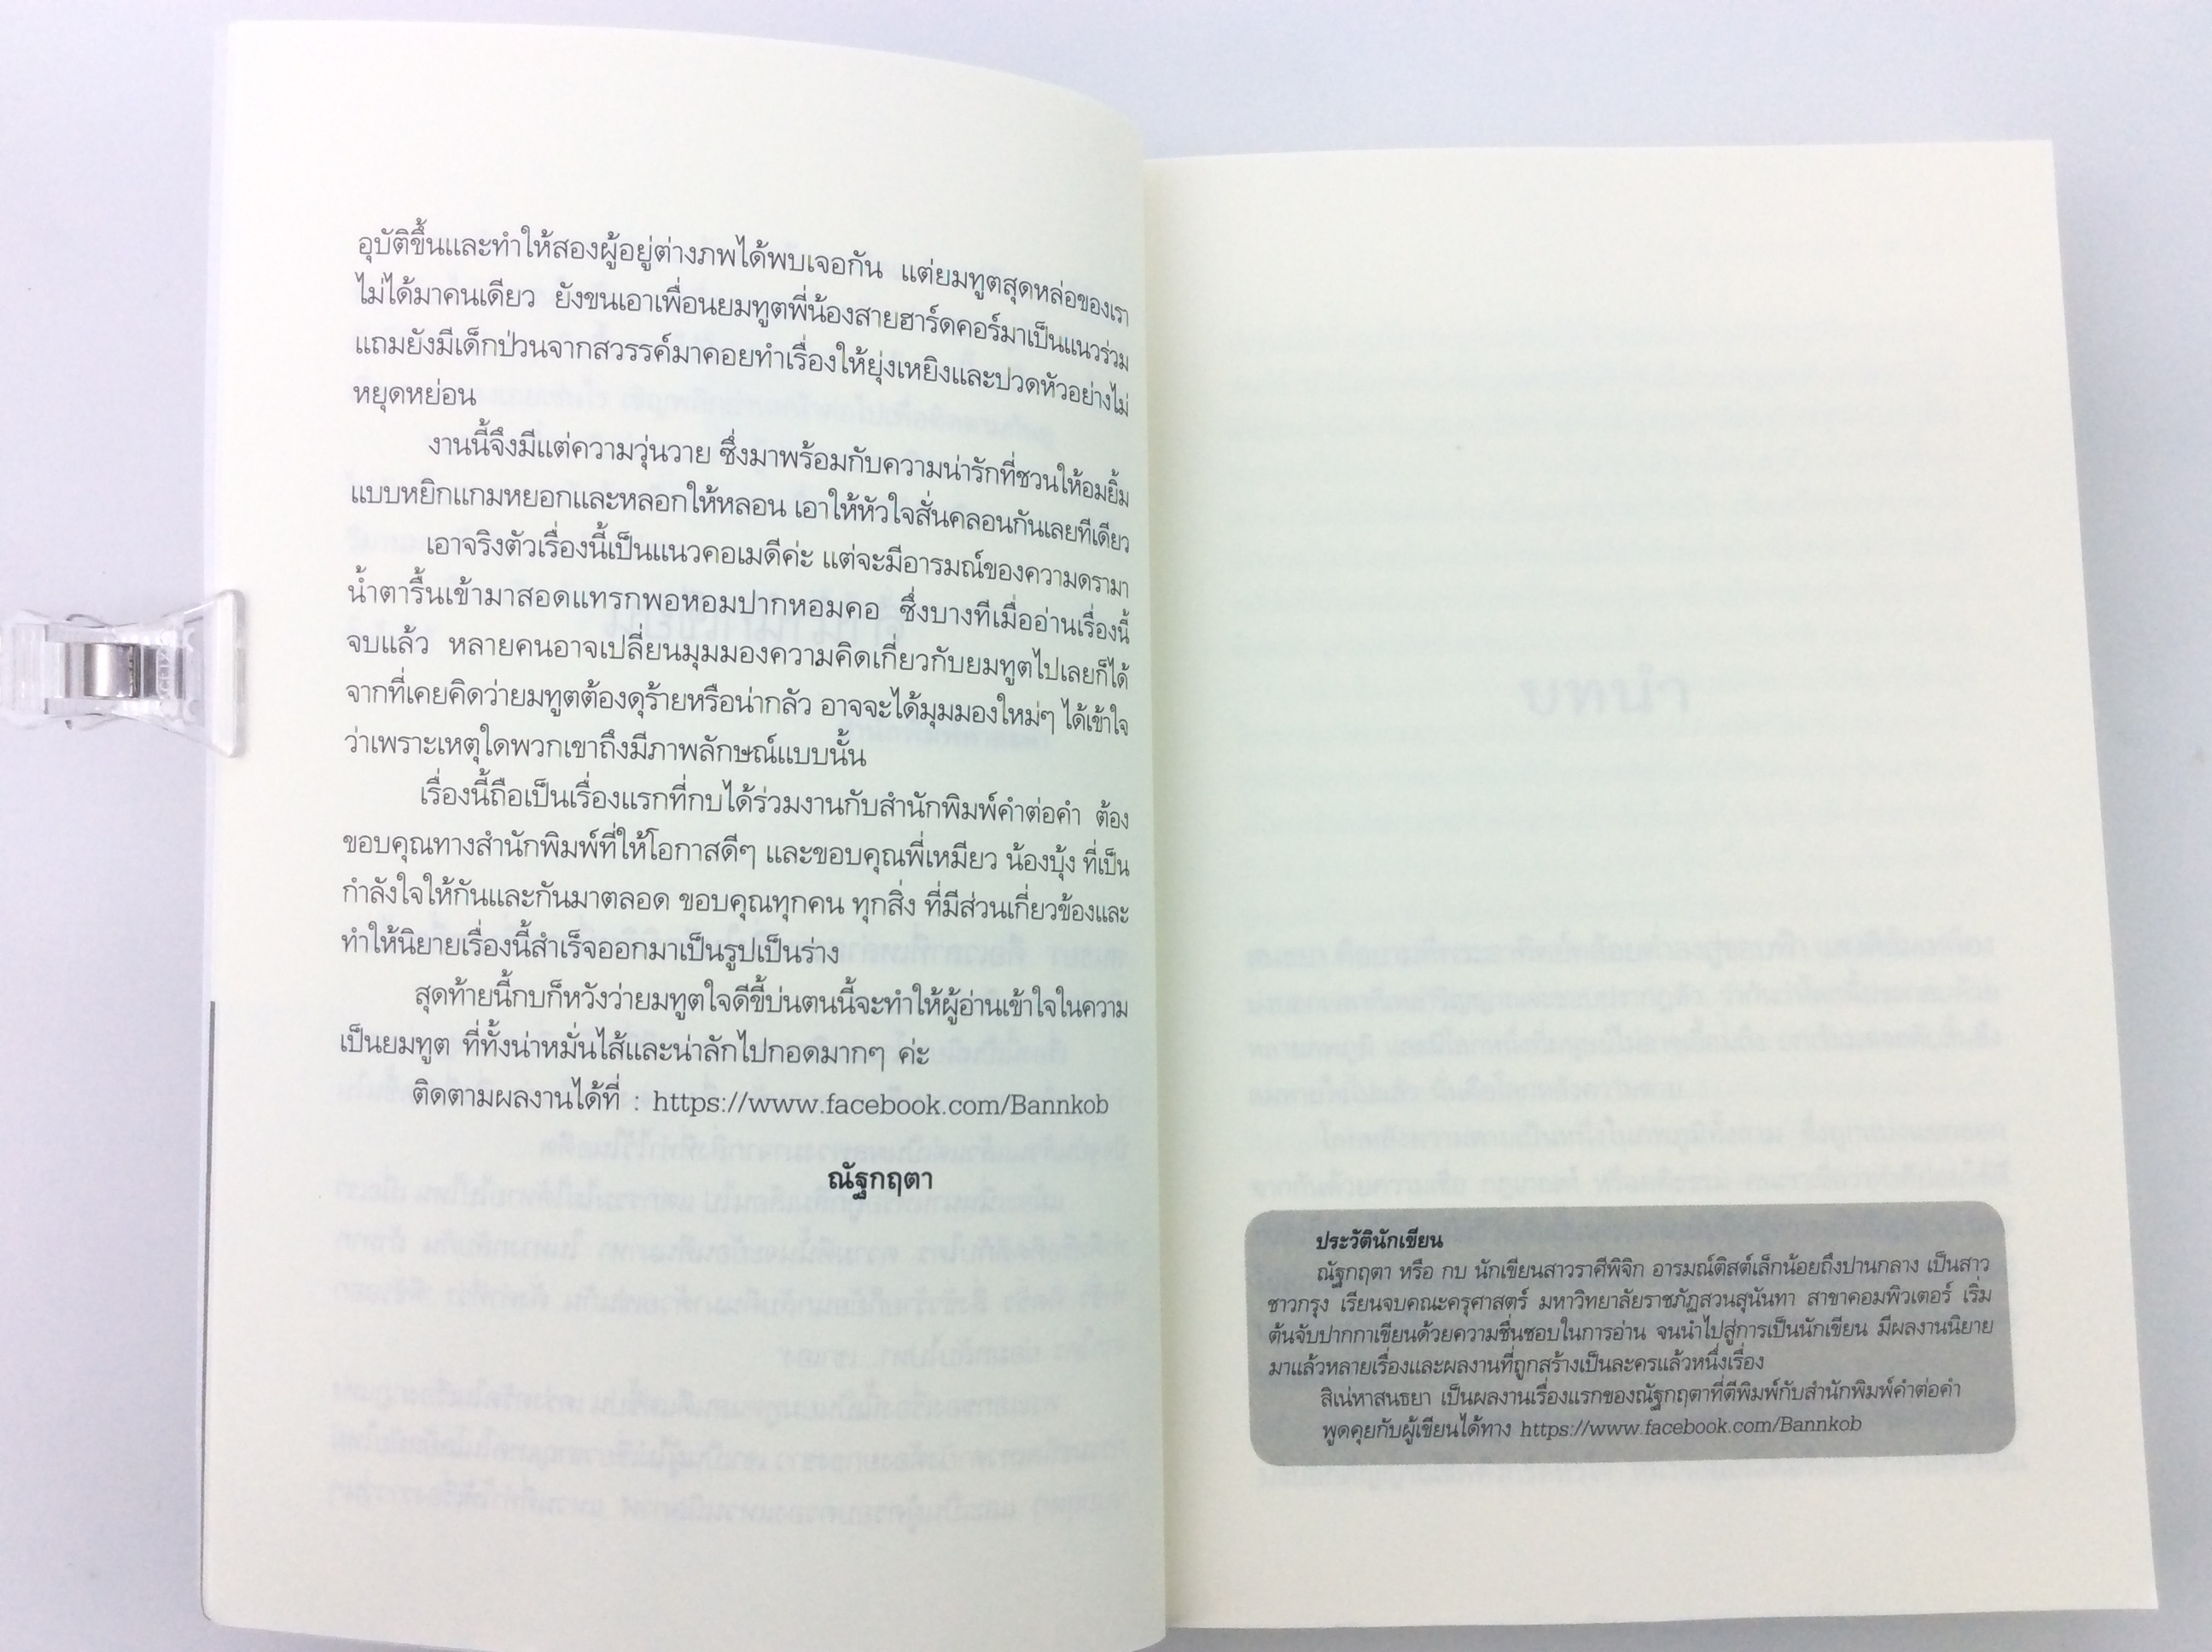 อุบัติขึ้นและทำให้สองผู้อยู่ต่างภพได้พบเจอกัน แต่ยมทูตสุดหล่อของเรา
ไม่ได้มาคนเดียว ยังขนเอาเพื่อนยมทูตพี่น้องสายฮาร์ดคอร์มาเป็นแนวร่วม
แถมยังมีเด็กป่วนจากสวรรค์มาคอยทำเรื่องให้ยุ่งเหยิงและปวดหัวอย่างไม่
หยุดหย่อน
งานนี้จึงมีแต่ความวุ่นวาย ซึ่งมาพร้อมกับความน่ารักที่ชวนให้อมยิ้ม
แบบหยิกแกมหยอกและหลอกให้หลอน เอาให้หัวใจสั่นคลอนกันเลยทีเดียว
เอาจริงตัวเรื่องนี้เป็นแนวคอเมดีค่ะ แต่จะมีอารมณ์ของความดรามา
น้ำตารื้นเข้ามาสอดแทรกพอหอมปากหอมคอ ซึ่งบางทีเมื่ออ่านเรื่องนี้
จบแล้ว หลายคนอาจเปลี่ยนมุมมองความคิดเกี่ยวกับยมทูตไปเลยก็ได้
จากที่เคยคิดว่ายมทูตต้องดุร้ายหรือน่ากลัว อาจจะได้มุมมองใหม่ๆ ได้เข้าใจ
ว่าเพราะเหตุใดพวกเขาถึงมีภาพลักษณ์แบบนั้น
เรื่องนี้ถือเป็นเรื่องแรกที่กบได้ร่วมงานกับสำนักพิมพ์คำต่อคำ ต้อง
ขอบคุณทางสำนักพิมพ์ที่ให้โอกาสดีๆ และขอบคุณพี่เหมียว น้องบุ้ง ที่เป็น
กำลังใจให้กันและกันมาตลอด ขอบคุณทุกคน ทุกสิ่ง ที่มีส่วนเกี่ยวข้องและ
ทำให้นิยายเรื่องนี้สำเร็จออกมาเป็นรูปเป็นร่าง
สุดท้ายนี้กบก็หวังว่ายมทูตใจดีขี้บ่นตนนี้จะทำให้ผู้อ่านเข้าใจในความ
เป็นยมทูต ที่ทั้งน่าหมั่นไส้และน่าลักไปกอดมากๆ ค่ะ
ติดตามผลงานได้ที่ : https://www.facebook.com/Bannkob
ณัฐกฤตา
ประวัตินักเขียน
ณัฐกฤตา หรือ กบ นักเขียนสาวราศีพิจิก อารมณ์ติสต์เล็กน้อยถึงปานกลาง เป็นสาว
ชาวกรุง เรียนจบคณะครุศาสตร์ มหาวิทยาลัยราชภัฏสวนสุนันทา สาขาคอมพิวเตอร์ เริ่ม
ต้นจับปากกาเขียนด้วยความชื่นชอบในการอ่าน จนนำไปสู่การเป็นนักเขียน มีผลงานนิยาย
มาแล้วหลายเรื่องและผลงานที่ถูกสร้างเป็นละครแล้วหนึ่งเรื่อง
สิเน่หาสนธยา เป็นผลงานเรื่องแรกของณัฐกฤตาที่ตีพิมพ์กับสำนักพิมพ์คำต่อคำ
พูดคุยกับผู้เขียนได้ทาง https://www.facebook.com/Bannkob